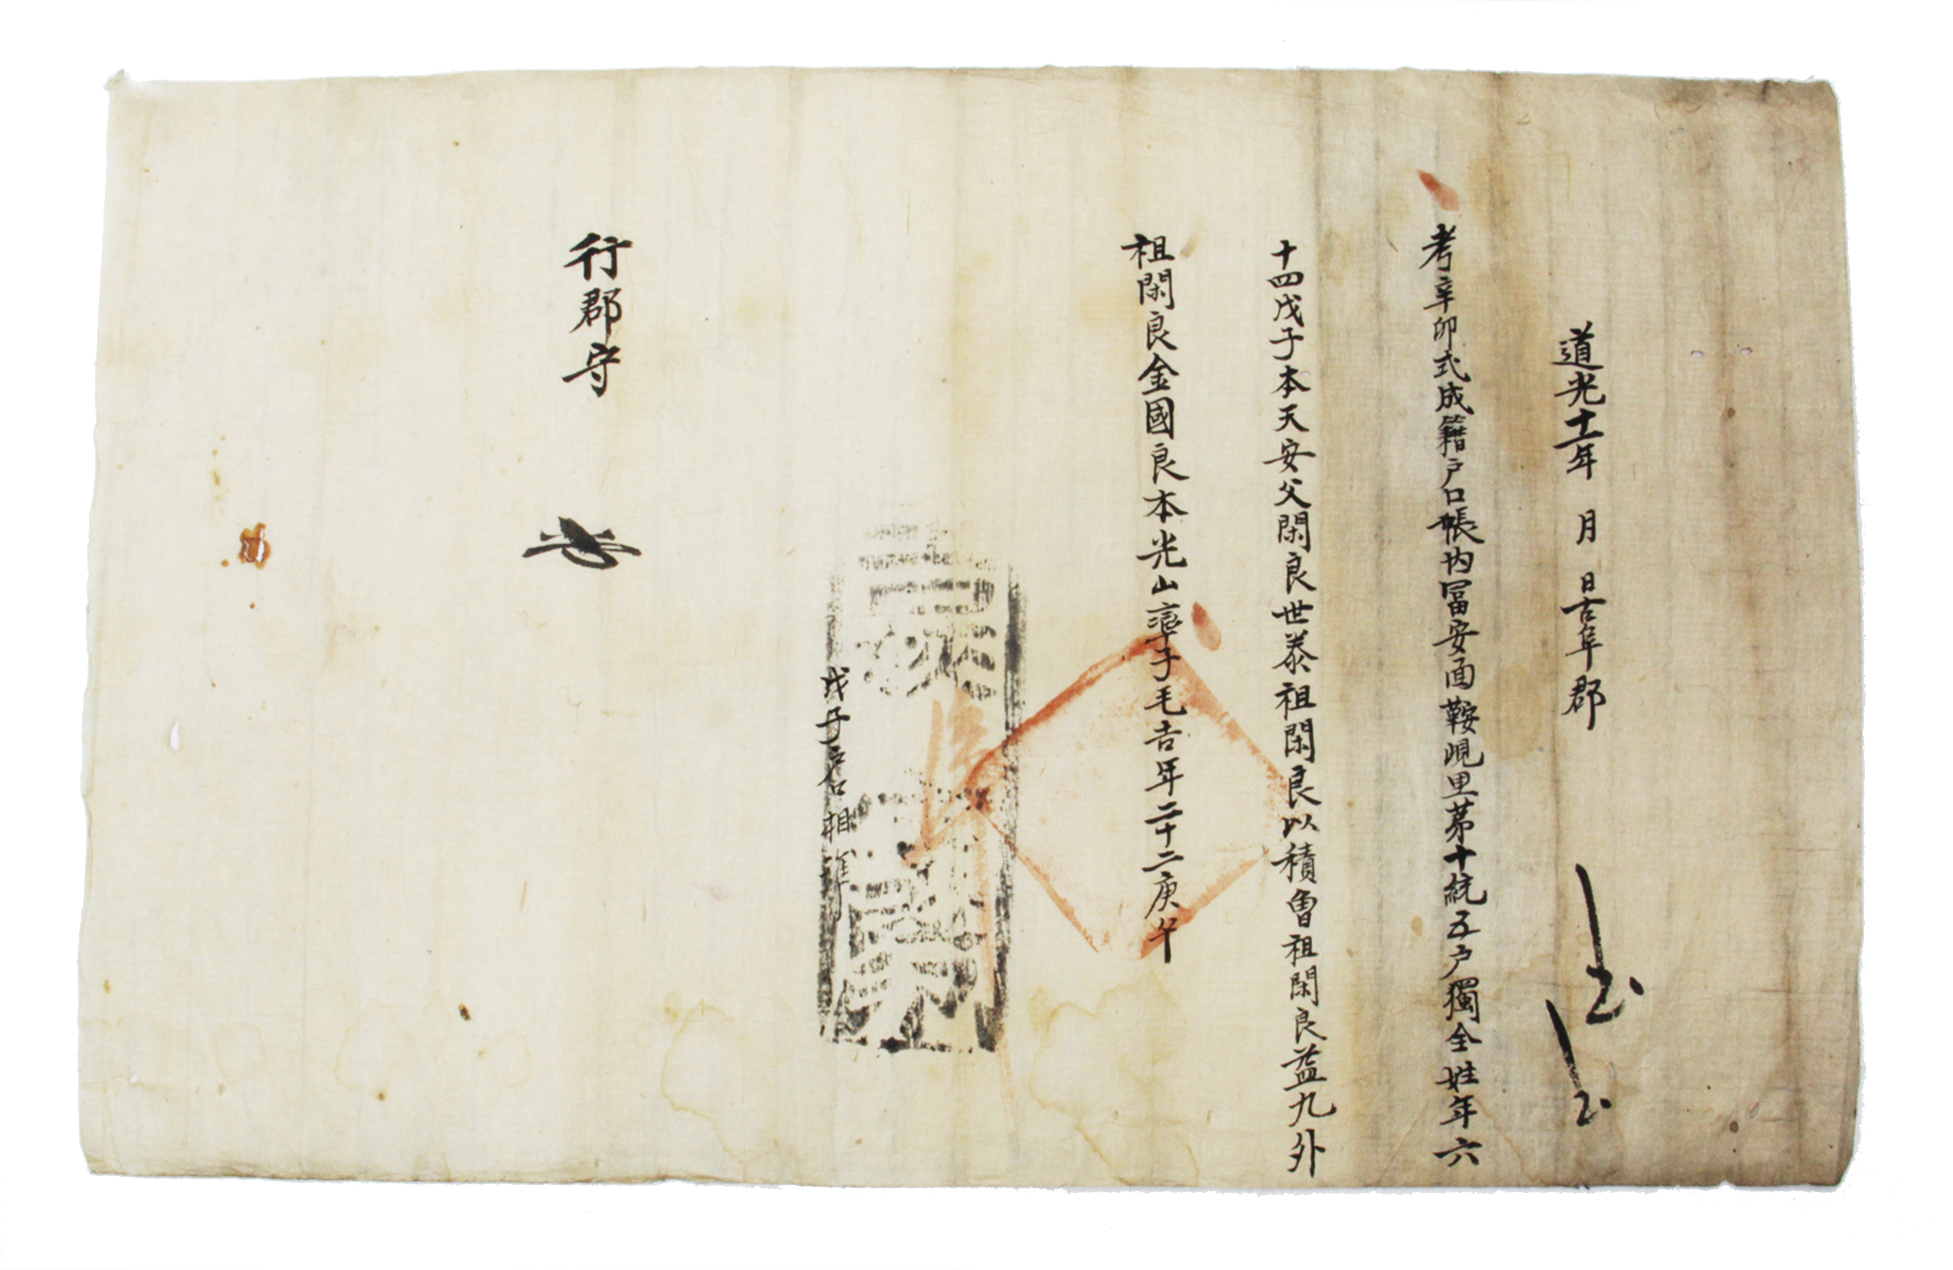 道光十一年 月 日古阜郡
考辛卯式成籍户口帳內冨安面鞍峴里苐十統五户獨全姓年六
十四戊子本天安父閑良世泰祖閑良以積曾祖閑良益九外
祖閑良金國良本光山率子毛吉年二十二庚午
戊子户口相準
行郡守